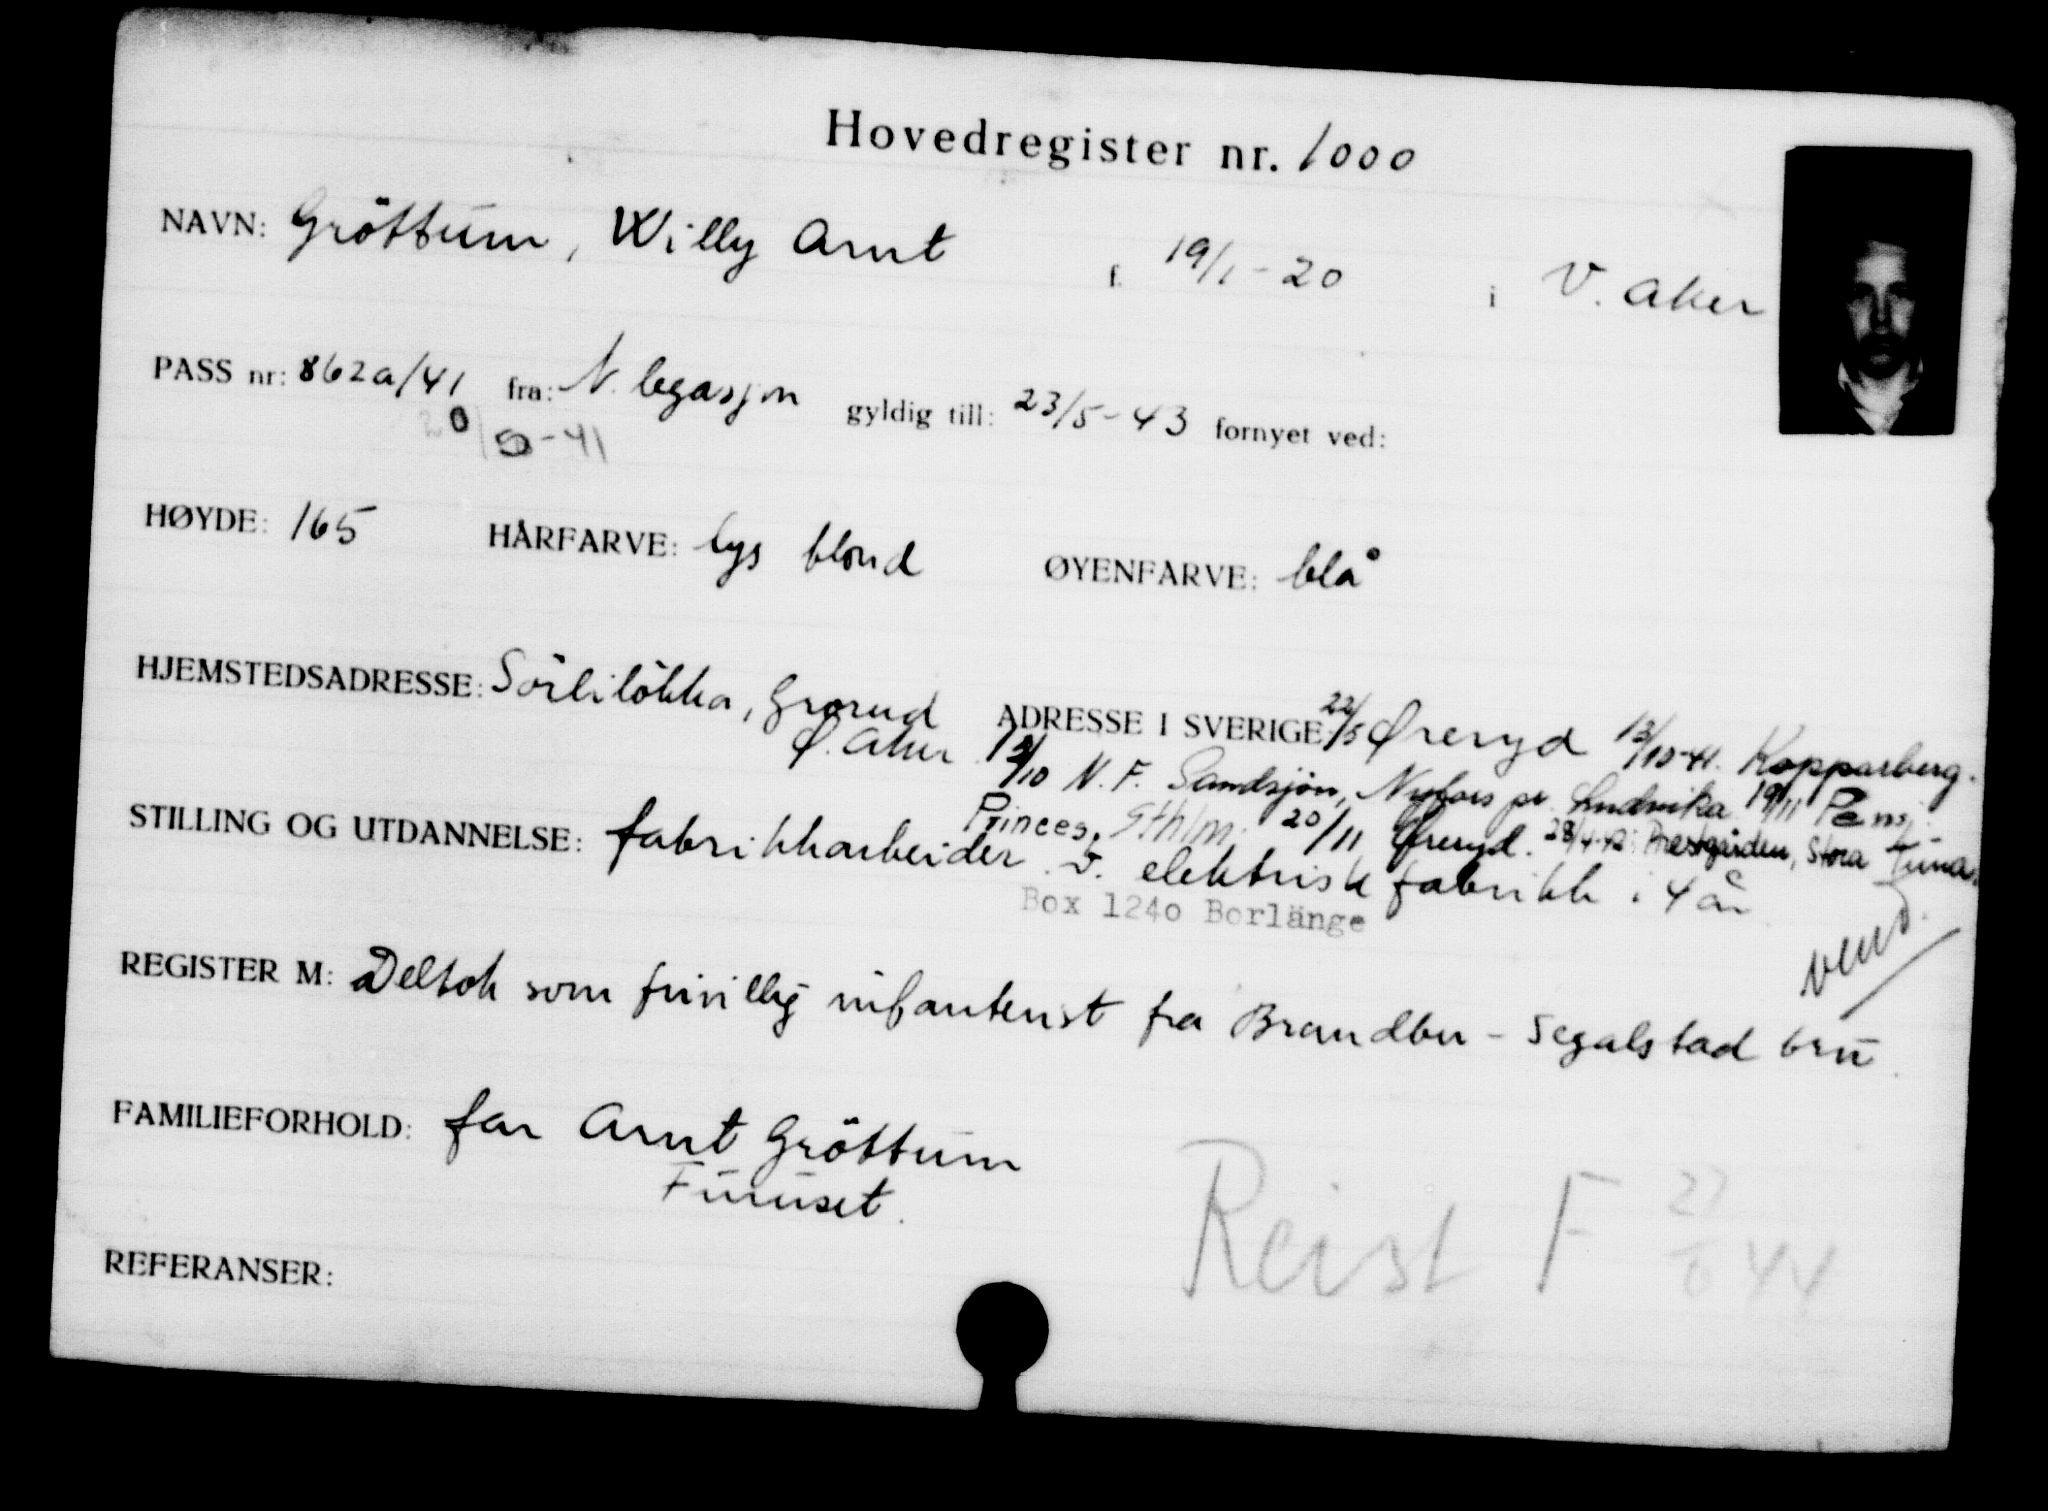 Hovedregister nr. 1000
NAVN: Gröttum, Willy Arnt f. 19/1-20 i V. Aker
PASS nr: 862a/41 fra: N. legasjon gyldig till: 23/5-43 fornyet ved:
20/5-41
HØYDE: 165 HÅRFARVE: lys blond ØYENFARVE: blå
HJEMSTEDSADRESSE: Sörlilökka, Grorud ADRESSE I SVERIGE: 22/5 Øreryd 13/10-41. Kopparberg.
Ø. Aker 13/10 N. F. Sandsjön, Nyfors pr. Ludvika 19/11 Pensj.
Princes, Sthlm. 20/11 Øreryd. 28/4-42: Prestgården, Stora Tuna.
STILLING OG UTDANNELSE: fabrikkarbeider v. elektrisk fabrikk i 4 år
Box 1240 Borlänge
vend.
REGISTER M: Deltok som frivillig infanterist fra Brandbu - Segalstad bru
FAMILIEFORHOLD: far Arnt Gröttum
Furuset.
Reist F 27/6 44
REFERANSER: